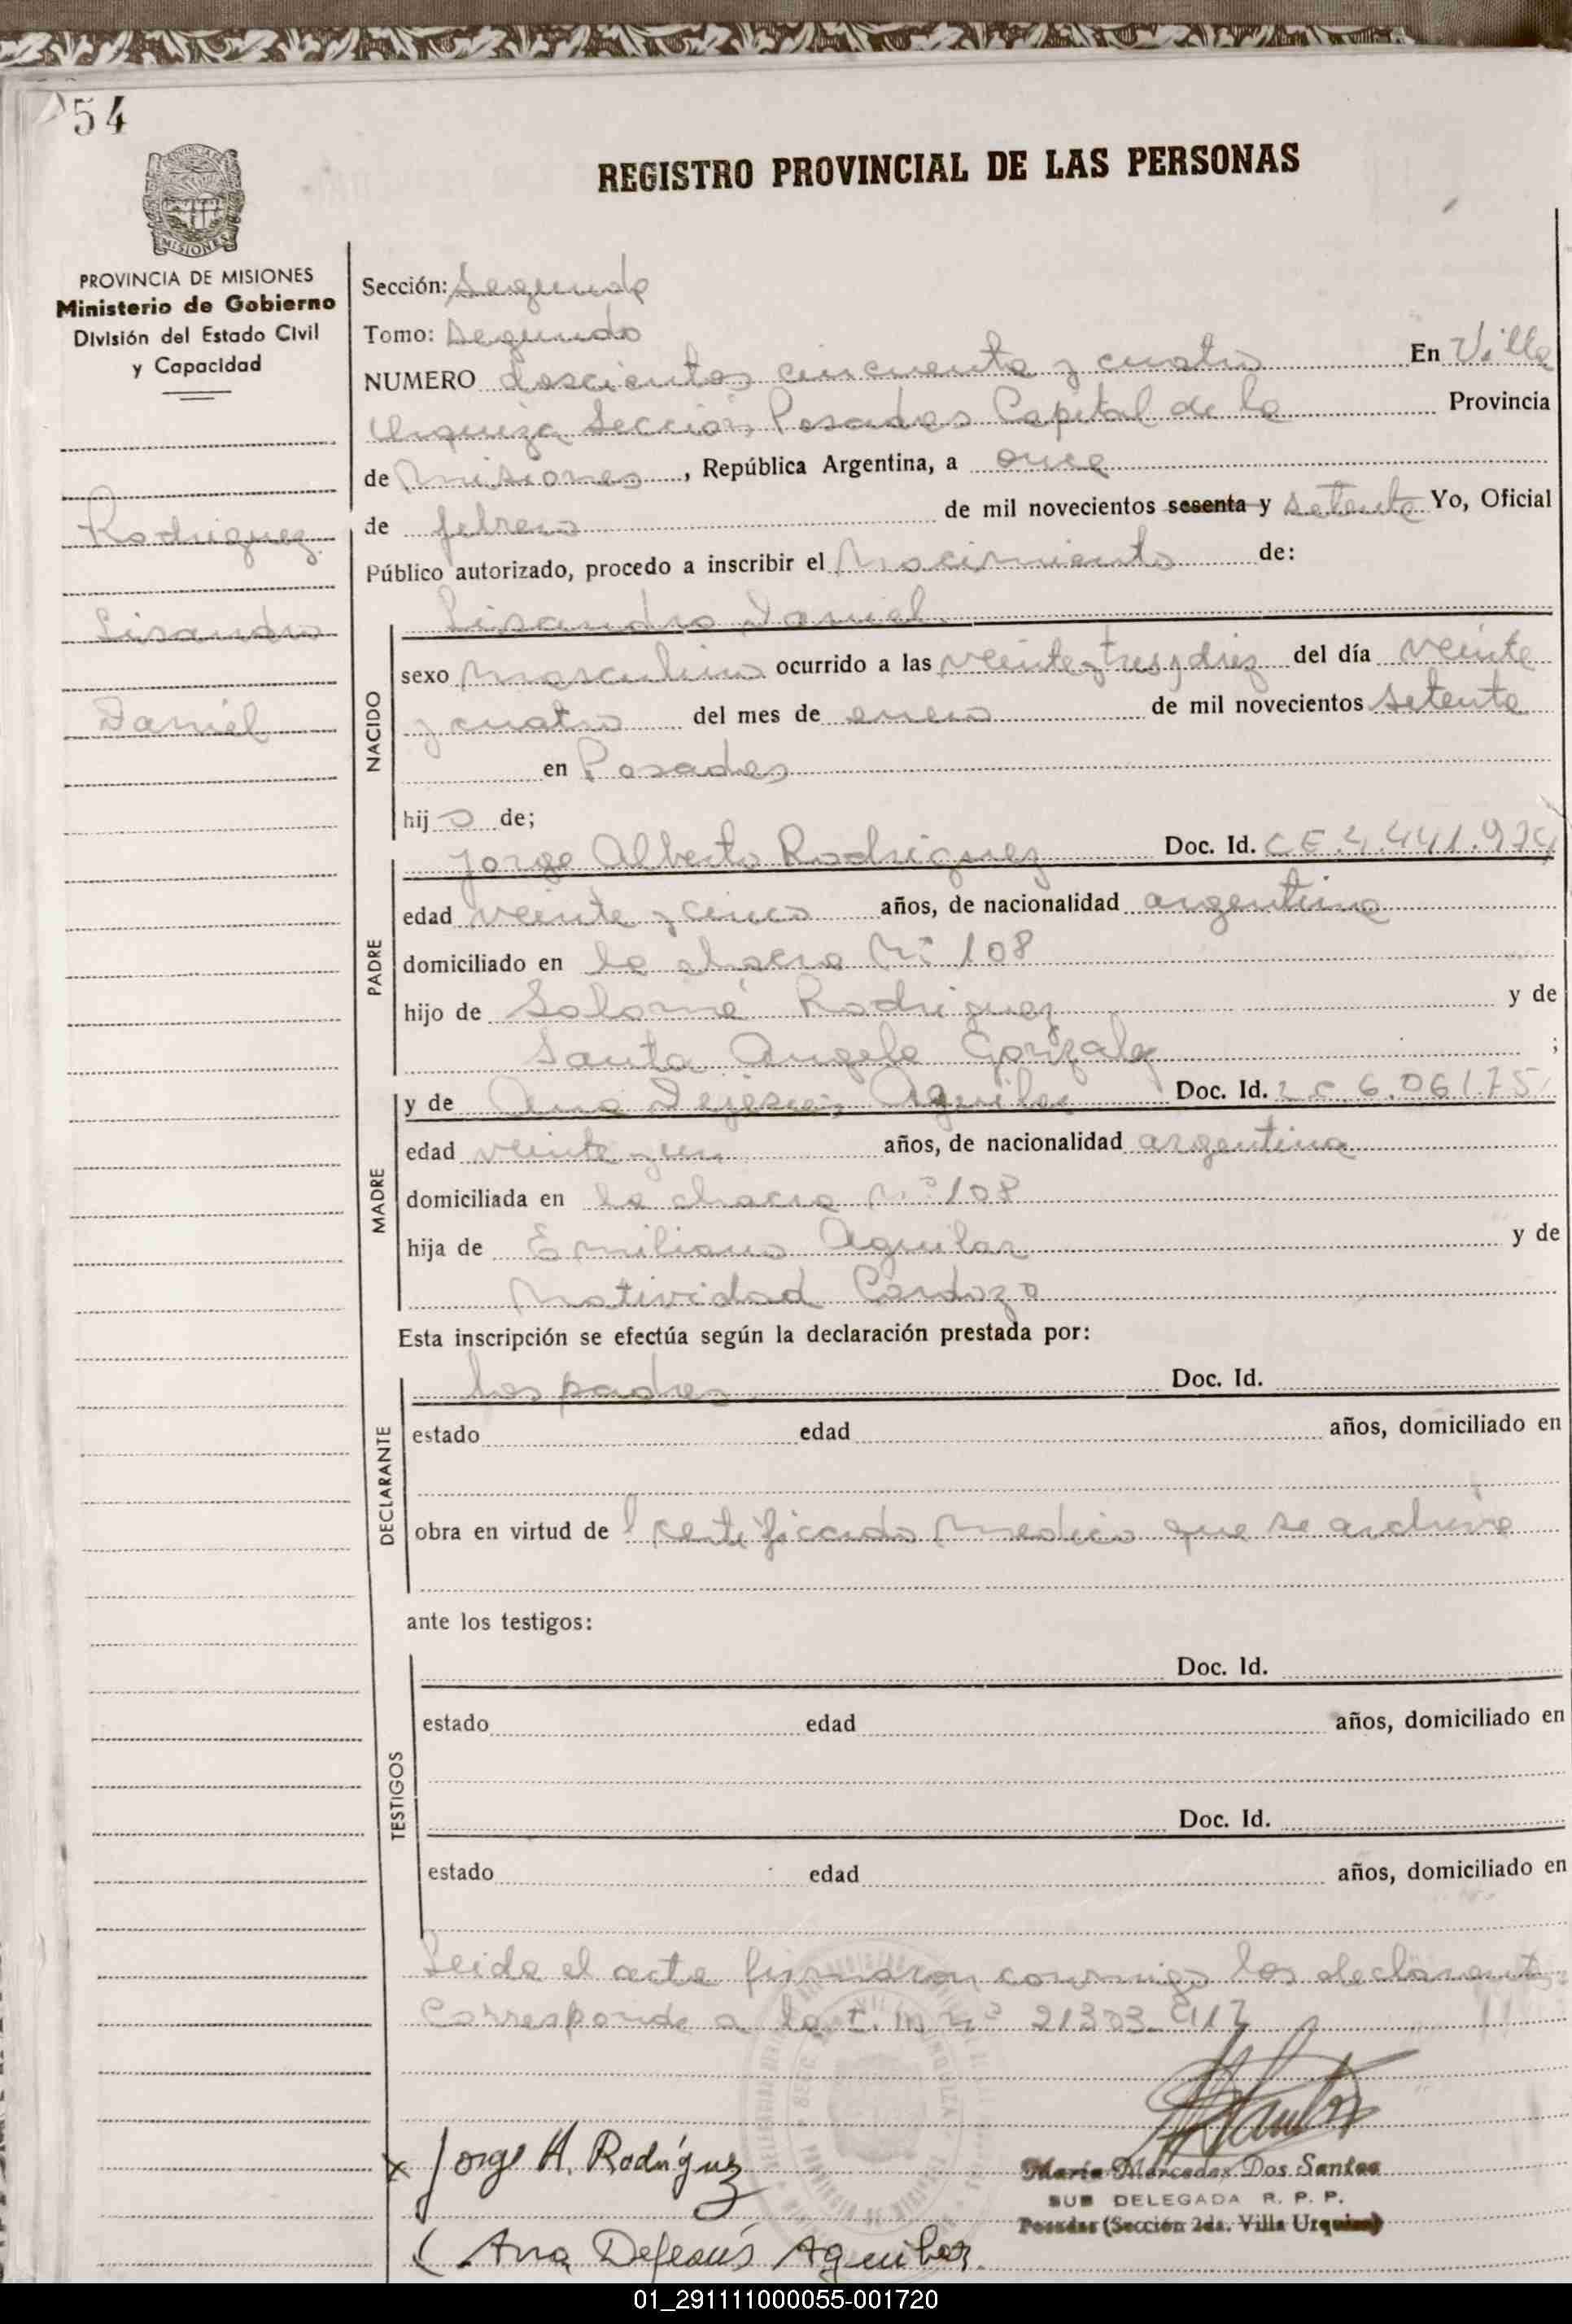 54
REGISTRO PROVINCIAL DE LAS PERSONAS
MISIONES
PROVINCIA DE MISIONES
Ministerio de Gobierno
División del Estado Civil
y Capacidad
Rodriguez
Lisandro
Daniel
Sección: Segunda
Tomo: Segundo
NUMERO doscientos cincuenta y cuatro En Villa
Urquiza Sección Posadas Capital de la Provincia
de Misiones, República Argentina, a once
de febrero de mil novecientos sesenta y setenta Yo, Oficial
Público autorizado, procedo a inscribir el Nacimiento de:
NACIDO
Lisandro Daniel
sexo Masculino ocurrido a las veinte y tres y diez del día veinte
y cuatro del mes de enero de mil novecientos setenta
en Posadas
hijo de;
PADRE
Jorge Alberto Rodriguez Doc. Id. C.E. 4.441.974
edad veinte y cinco años, de nacionalidad argentina
domiciliado en la chacra Nº 108
hijo de Salomé Rodriguez y de
Santa Angela Gonzalez ;
MADRE
y de Ana Dejesús Aguilar Doc. Id. L.C. 6.061.75
edad veinte y un años, de nacionalidad argentina
domiciliada en la chacra Nº 108
hija de Emiliano Aguilar y de
Natividad Cardozo
Esta inscripción se efectúa según la declaración prestada por:
DECLARANTE
los padres Doc. Id.
estado edad años, domiciliado en
obra en virtud de certificado medico que se archiva
ante los testigos:
TESTIGOS
Doc. Id.
estado edad años, domiciliado en
Doc. Id.
estado edad años, domiciliado en
Leida el acta firmaron conmigo los declarantes
Corresponde a la L.M. Nº 21303
Jorge A. Rodríguez
María Mercedes Dos Santos
SUB DELEGADA R. P. P.
Posadas (Sección 2da. Villa Urquiza)
Ana Dejesús Aguilar
01_291111000055-001720